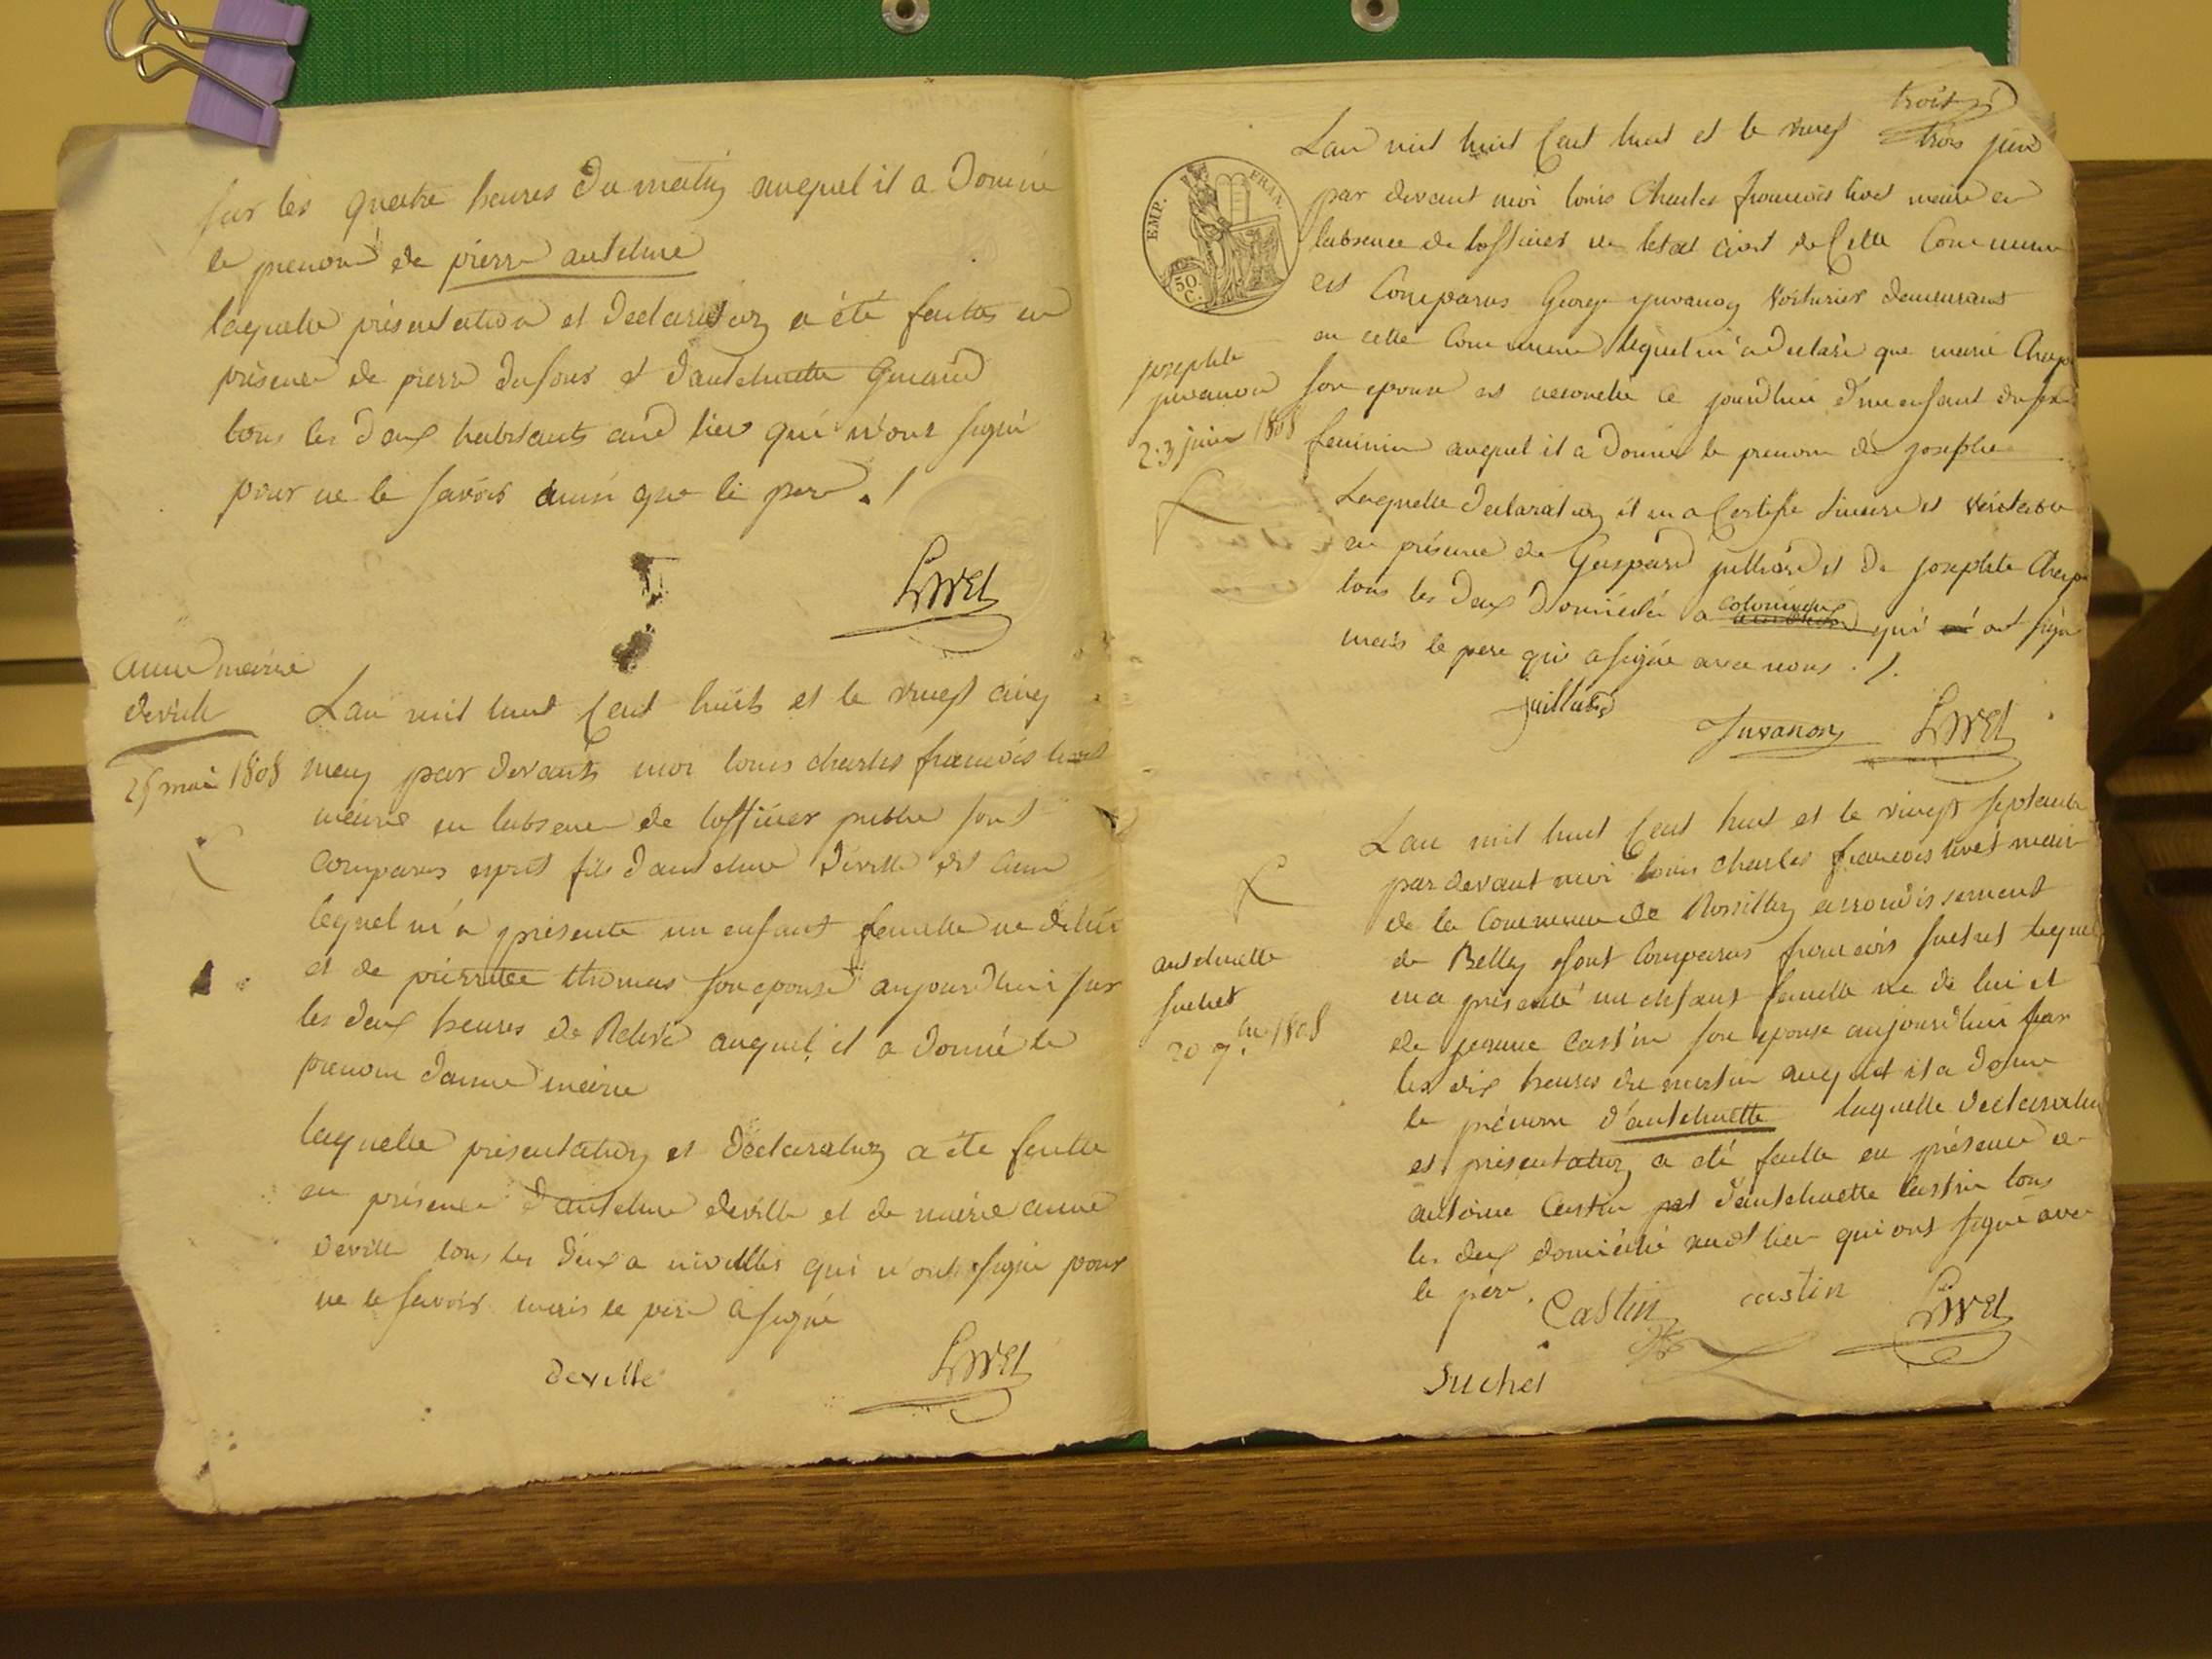 sur les quatre heures du matin auquel il a donné
le prenom de pierre antelme
laquelle présentation et declaration a été faittes en
présence de pierre dufour et dantelmette
tous les deux habitants aud lieu qui n'ont signé
pour ne le savoir ainsi que le pere ./
Livet
anne marie
deville
25 mai 1808
Lan mil huit Cent huit et le vingt cinq
may par devants moi louis charles francois livet
maire en labsence de lofficier public sont
comparus esprit fils dantelme deville et anne
lequel m'a présenté un enfant femelle né de lui
et de pierrette thomas son epouse aujourdhui sur
les deux heures de Relevé auquel il a donné le
prenom danne marie
laquelle présentation et déclaration a été faitte
en présence d'antelme deville et de marie anne
deville tous les deux a qui n'ont signé pour
ne le savoir mais le pere a signé
deville Livet
trois
Lan mil huit Cent huit et le vingt trois juin
EMP. FRAN.
50 C.
par devant moi louis Charles francois livet maire en
labsence de lofficier de letat civil de Cette Commune
est Comparus George juvanon voiturier demeurant
en cette Commune lequel m'a declaré que marie Chap
josephte
juvanon
23 juin 1808
son epouse est accouchée ce jourdhui d'un enfant du sexe
feminin auquel il a donné le prenom de josephte
Laquelle declaration il m'a Certifié sincere et véritable
en présence de Gaspard juilliard et de josephte Chap
tous les deux domiciliés a colomieu qui ont signé
mais le pere qui a signé avec nous ./.
juilliard
Juvanon Livet
Lan mil huit Cent huit et le vingt septembre
par devant moi louis charles francois livet maire
de la Commune de Rossillon arrondissement
de Belley sont Comparus francois suchet lequel
antelmette
suchet
20 7.bre 1808
m'a présenté un enfant femelle né de lui et
de jeanne Castin son epouse aujourdhui sur
les dix heures du matin auquel il a donné
le prénom d'antelmette laquelle declaration
et présentation a été faitte en présence de
antoine Castin et d'antelmette Castin tous
les deux domicilié aud lieu qui ont signé avec
le père.
Castin castin Livet
Suchet